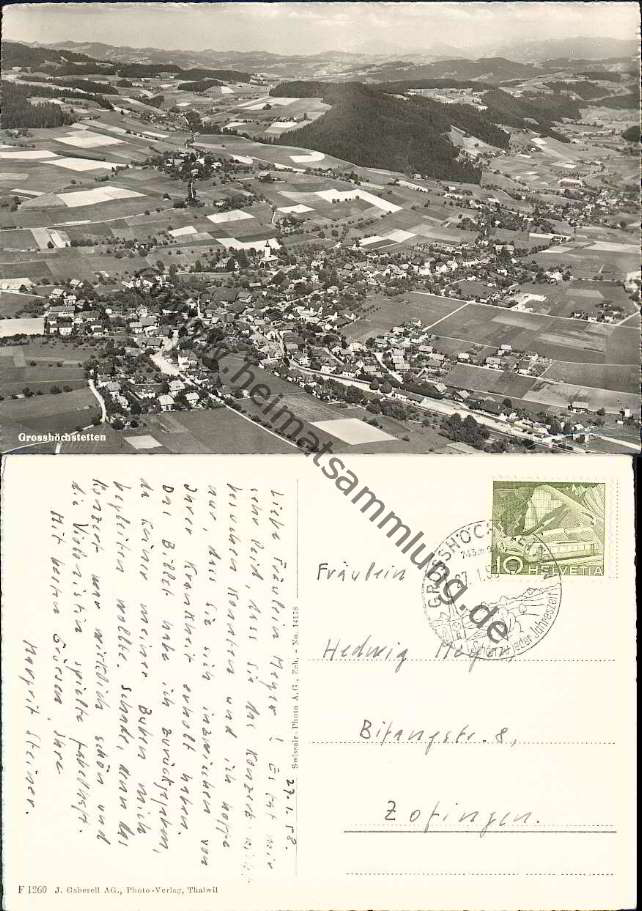 Grosshöchstetten
www.heimatsammlung.de
27.1.58.
Liebe Fräulein Meyer! Es tat mir
sehr leid, dass Sie das Konzert nicht
besuchen konnten und ich hoffe
nur, dass Sie sich inzwischen von
Ihrer Krankheit erholt haben.
Das Billet habe ich zurückgegeben,
da keiner meiner Buben mich
begleiten wollte. Schade, denn das
Konzert war wirklich schön und
die Violinistin spielte fabelhaft.
Mit besten Grüssen, Ihre
Margrit Steiner.
Swissair-Photo A.G., Zch. - No. 14178
HELVETIA
10
GROSSHÖCHSTETTEN
jeder Jahreszeit
Fräulein
Hedwig Meyer,
Bifangstr. 8,
Zofingen.
F 1260 J. Gaberell AG., Photo-Verlag, Thalwil